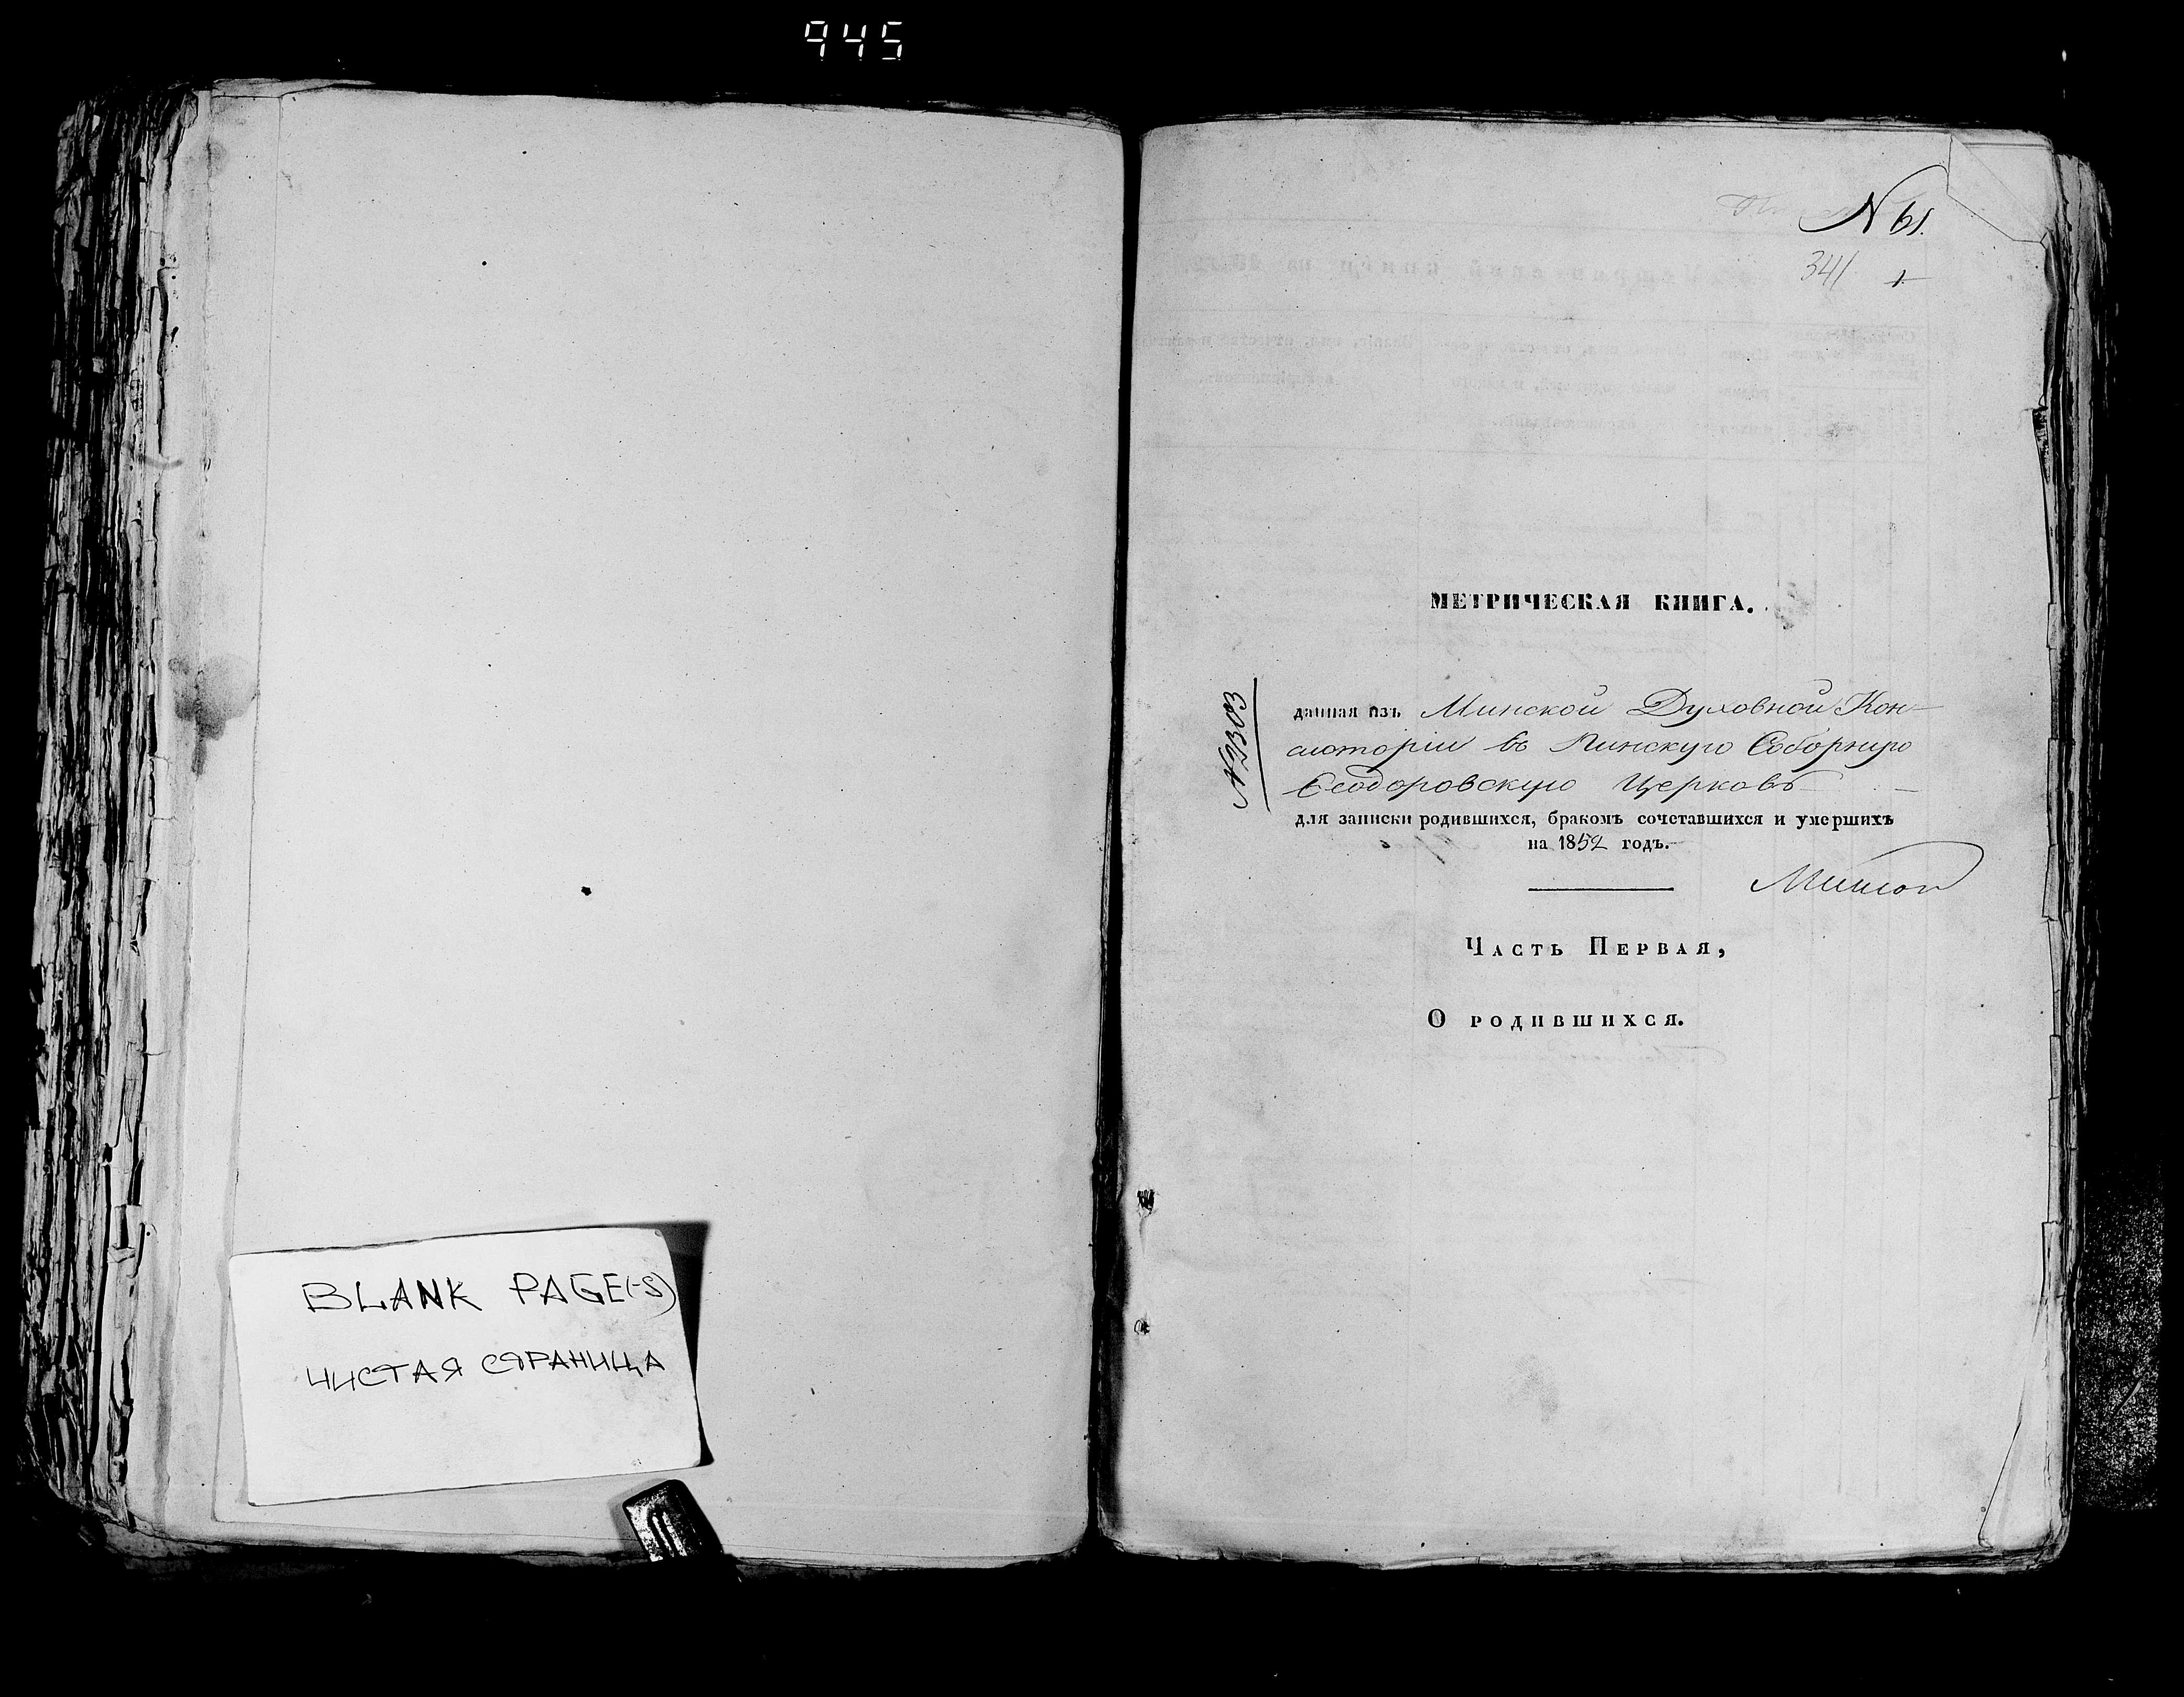 945
BLANK PAGE(-S)
ЧИСТАЯ СТРАНИЦА
N 61.
341 1
МЕТРИЧЕСКАЯ КНИГА.
N 2303
данная изъ Минской Духовной Кон-
систоріи въ Пинскую Соборную
Ѳеодоровскую Церковь
для записки родившихся, бракомъ сочетавшихся и умершихъ
на 1852 годъ.
Часть Первая,
О родившихся.